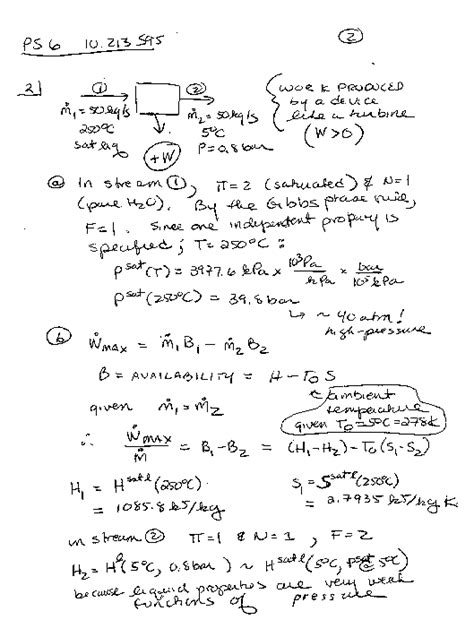 PS 6 10.213 S95
②
2]
① ②
ṁ₁ = 50 kg/s
250°C
sat liq
ṁ₂ = 50 kg/s
5°C
P = 0.8 bar
+W
WORK PRODUCED
by a device
like a turbine
(W>0)
ⓐ In stream ①, π=2 (saturated) & N=1
(pure H₂O). By the Gibbs phase rule,
F=1. Since one independent property is
specified; T=250°C:
Pˢᵃᵗ(T) = 3977.6 kPa × 10³Pa/kPa × bar/10⁵Pa
Pˢᵃᵗ(250°C) = 39.8 bar
↳ ~ 40 atm!
high-pressure
ⓑ Ẇmax = ṁ₁B₁ - ṁ₂B₂
B = AVAILABILITY = H - T₀S
given ṁ₁ = ṁ₂
ambient
temperature
given T₀ = 5°C = 278K
∴ Ẇmax/ṁ = B₁-B₂ = (H₁-H₂) - T₀(S₁-S₂)
H₁ = Hˢᵃᵗ ˡ(250°C)
= 1085.8 kJ/kg
S₁ = Sˢᵃᵗ ˡ(250°C)
= 2.7935 kJ/kg K
in stream ② π=1 & N=1, F=2
H₂ = Hˡ(5°C, 0.8 bar) ~ Hˢᵃᵗ ˡ(5°C, Pˢᵃᵗ @ 5°C)
because liquid properties are very weak
functions of pressure